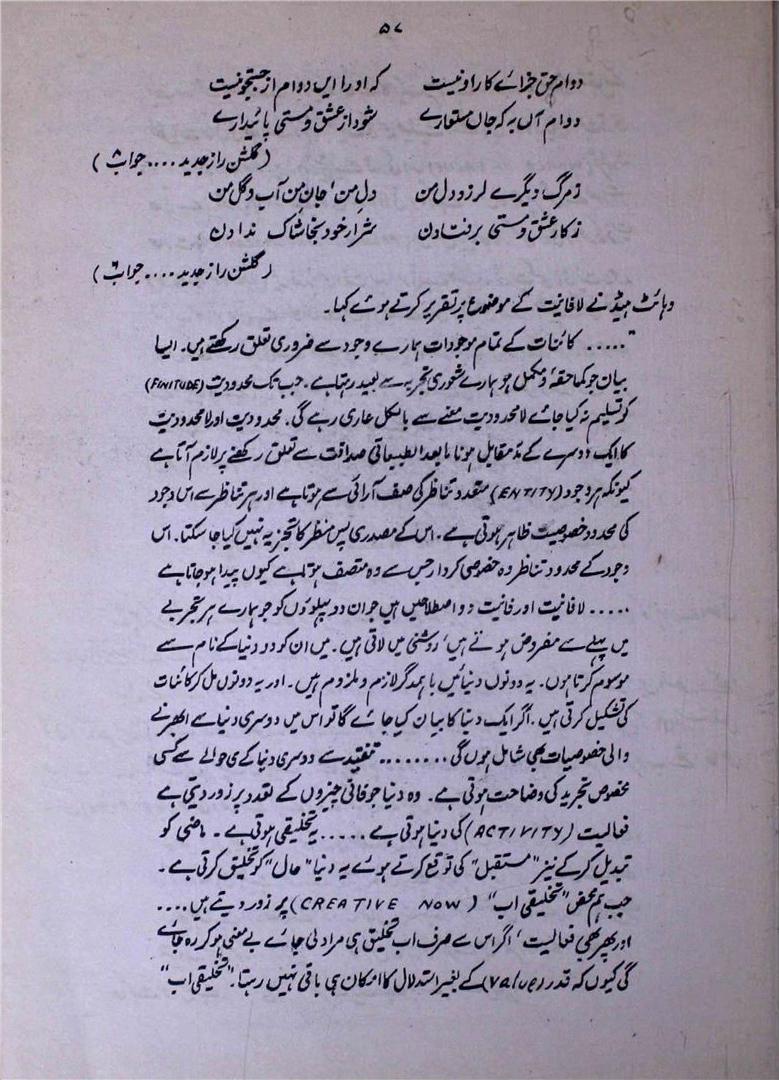 ۵۷
دوام حق جزائے کار او نیست کہ او را ایں دوام از جستجو نیست
دوام آں بہ کہ جاں مستعارے شود از عشق و مستی پائیدارے
(گلشن راز جدید .... جواب ۸)
ز مرگ دیگرے لرزد دل من دلِ من ' جانِ من آب و گل من
ز کار عشق و مستی برفتادن شرار خود بخاشاک ندادن
(گلشن راز جدید .... جواب ۶)
وہائٹ ہیڈ نے لافانیت کے موضوع پر تقریر کرتے ہوئے کہا۔
"..... کائنات کے تمام موجودات ہمارے وجود سے ضروری تعلق رکھتے ہیں۔ ایسا
بیان جو کماحقہٗ و مکمل ہو ہمارے شعوری تجربہ سے بعید رہتا ہے۔ جب تک محدودیت (FINITUDE)
کو تسلیم نہ کیا جائے لامحدودیت معنے سے بالکل عاری رہے گی۔ محدودیت اور لامحدودیت
کا ایک دوسرے کے مدّ مقابل ہونا مابعد الطبیعاتی صداقت سے تعلق رکھنے پر لازم آتا ہے
کیونکہ ہر وجود (ENTITY) متعدد تناظر کی صف آرائی سے ہوتا ہے اور ہر تناظر سے اس وجود
کی محدود خصوصیت ظاہر ہوتی ہے۔ اس کے مصدری پس منظر کا تجزیہ نہیں کیا جا سکتا۔ اس
وجود کے محدود تناظر وہ خصوصی کردار جس سے وہ متصف ہوتا ہے کیوں پیدا ہو جاتا ہے
..... لافانیت اور فانیت دو اصطلاحیں ہیں جو ان دو پہلوؤں کو جو ہمارے ہر تجربے
میں پہلے سے مفروض ہوتے ہیں ' روشنی میں لاتی ہیں۔ میں ان کو دو دنیا کے نام سے
موسوم کرتا ہوں۔ یہ دونوں دنیائیں باہمدگر لازم و ملزوم ہیں۔ اور یہ دونوں مل کر کائنات
کی تشکیل کرتی ہیں۔ اگر ایک دنیا کا بیان کیا جائے گا تو اس میں دوسری دنیا سے ابھرنے
والی خصوصیات بھی شامل ہوں گی ........ تنقید سے دوسری دنیا کے ہی حوالے سے کسی
مخصوص تجرید کی وضاحت ہوتی ہے۔ وہ دنیا جو فانی چیزوں کے تعدد پر زور دیتی ہے
فعالیت (ACTIVITY) کی دنیا ہوتی ہے ..... یہ تخلیقی ہوتی ہے۔ ماضی کو
تبدیل کر کے نیز "مستقبل" کی توقع کرتے ہوئے یہ دنیا "حال" کو تخلیق کرتی ہے۔
جب ہم محض "تخلیقی اب" (CREATIVE NOW) پر زور دیتے ہیں....
اور پھر بھی فعالیت ' اگر اس سے صرف اب تخلیق ہی مراد لی جائے بے معنی ہو کر رہ جائے
گی کیوں کہ قدر (Value) کے بغیر استدلال کا امکان ہی باقی نہیں رہتا۔ "تخلیقی اب"